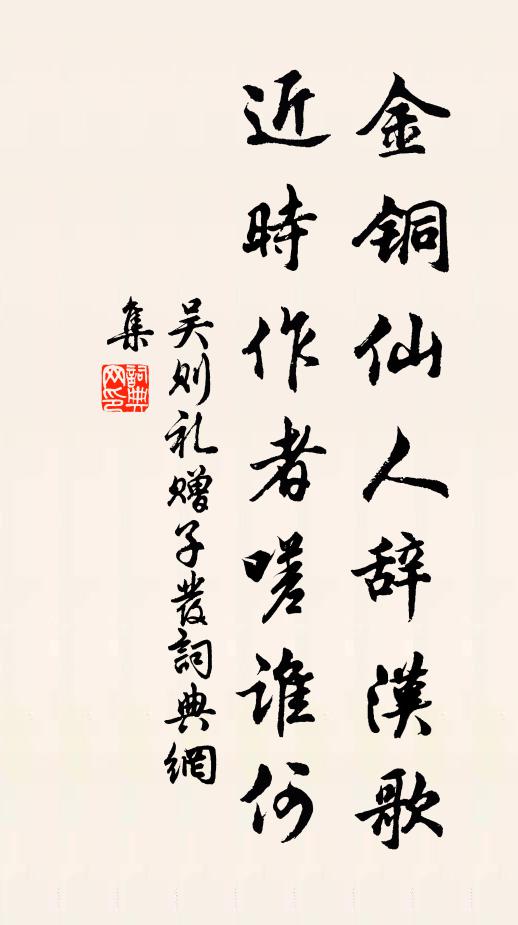 金铜仙人辞漢歌
近時作者嗟谁何
吴则礼赠子發詞典網
集
詞典
网印